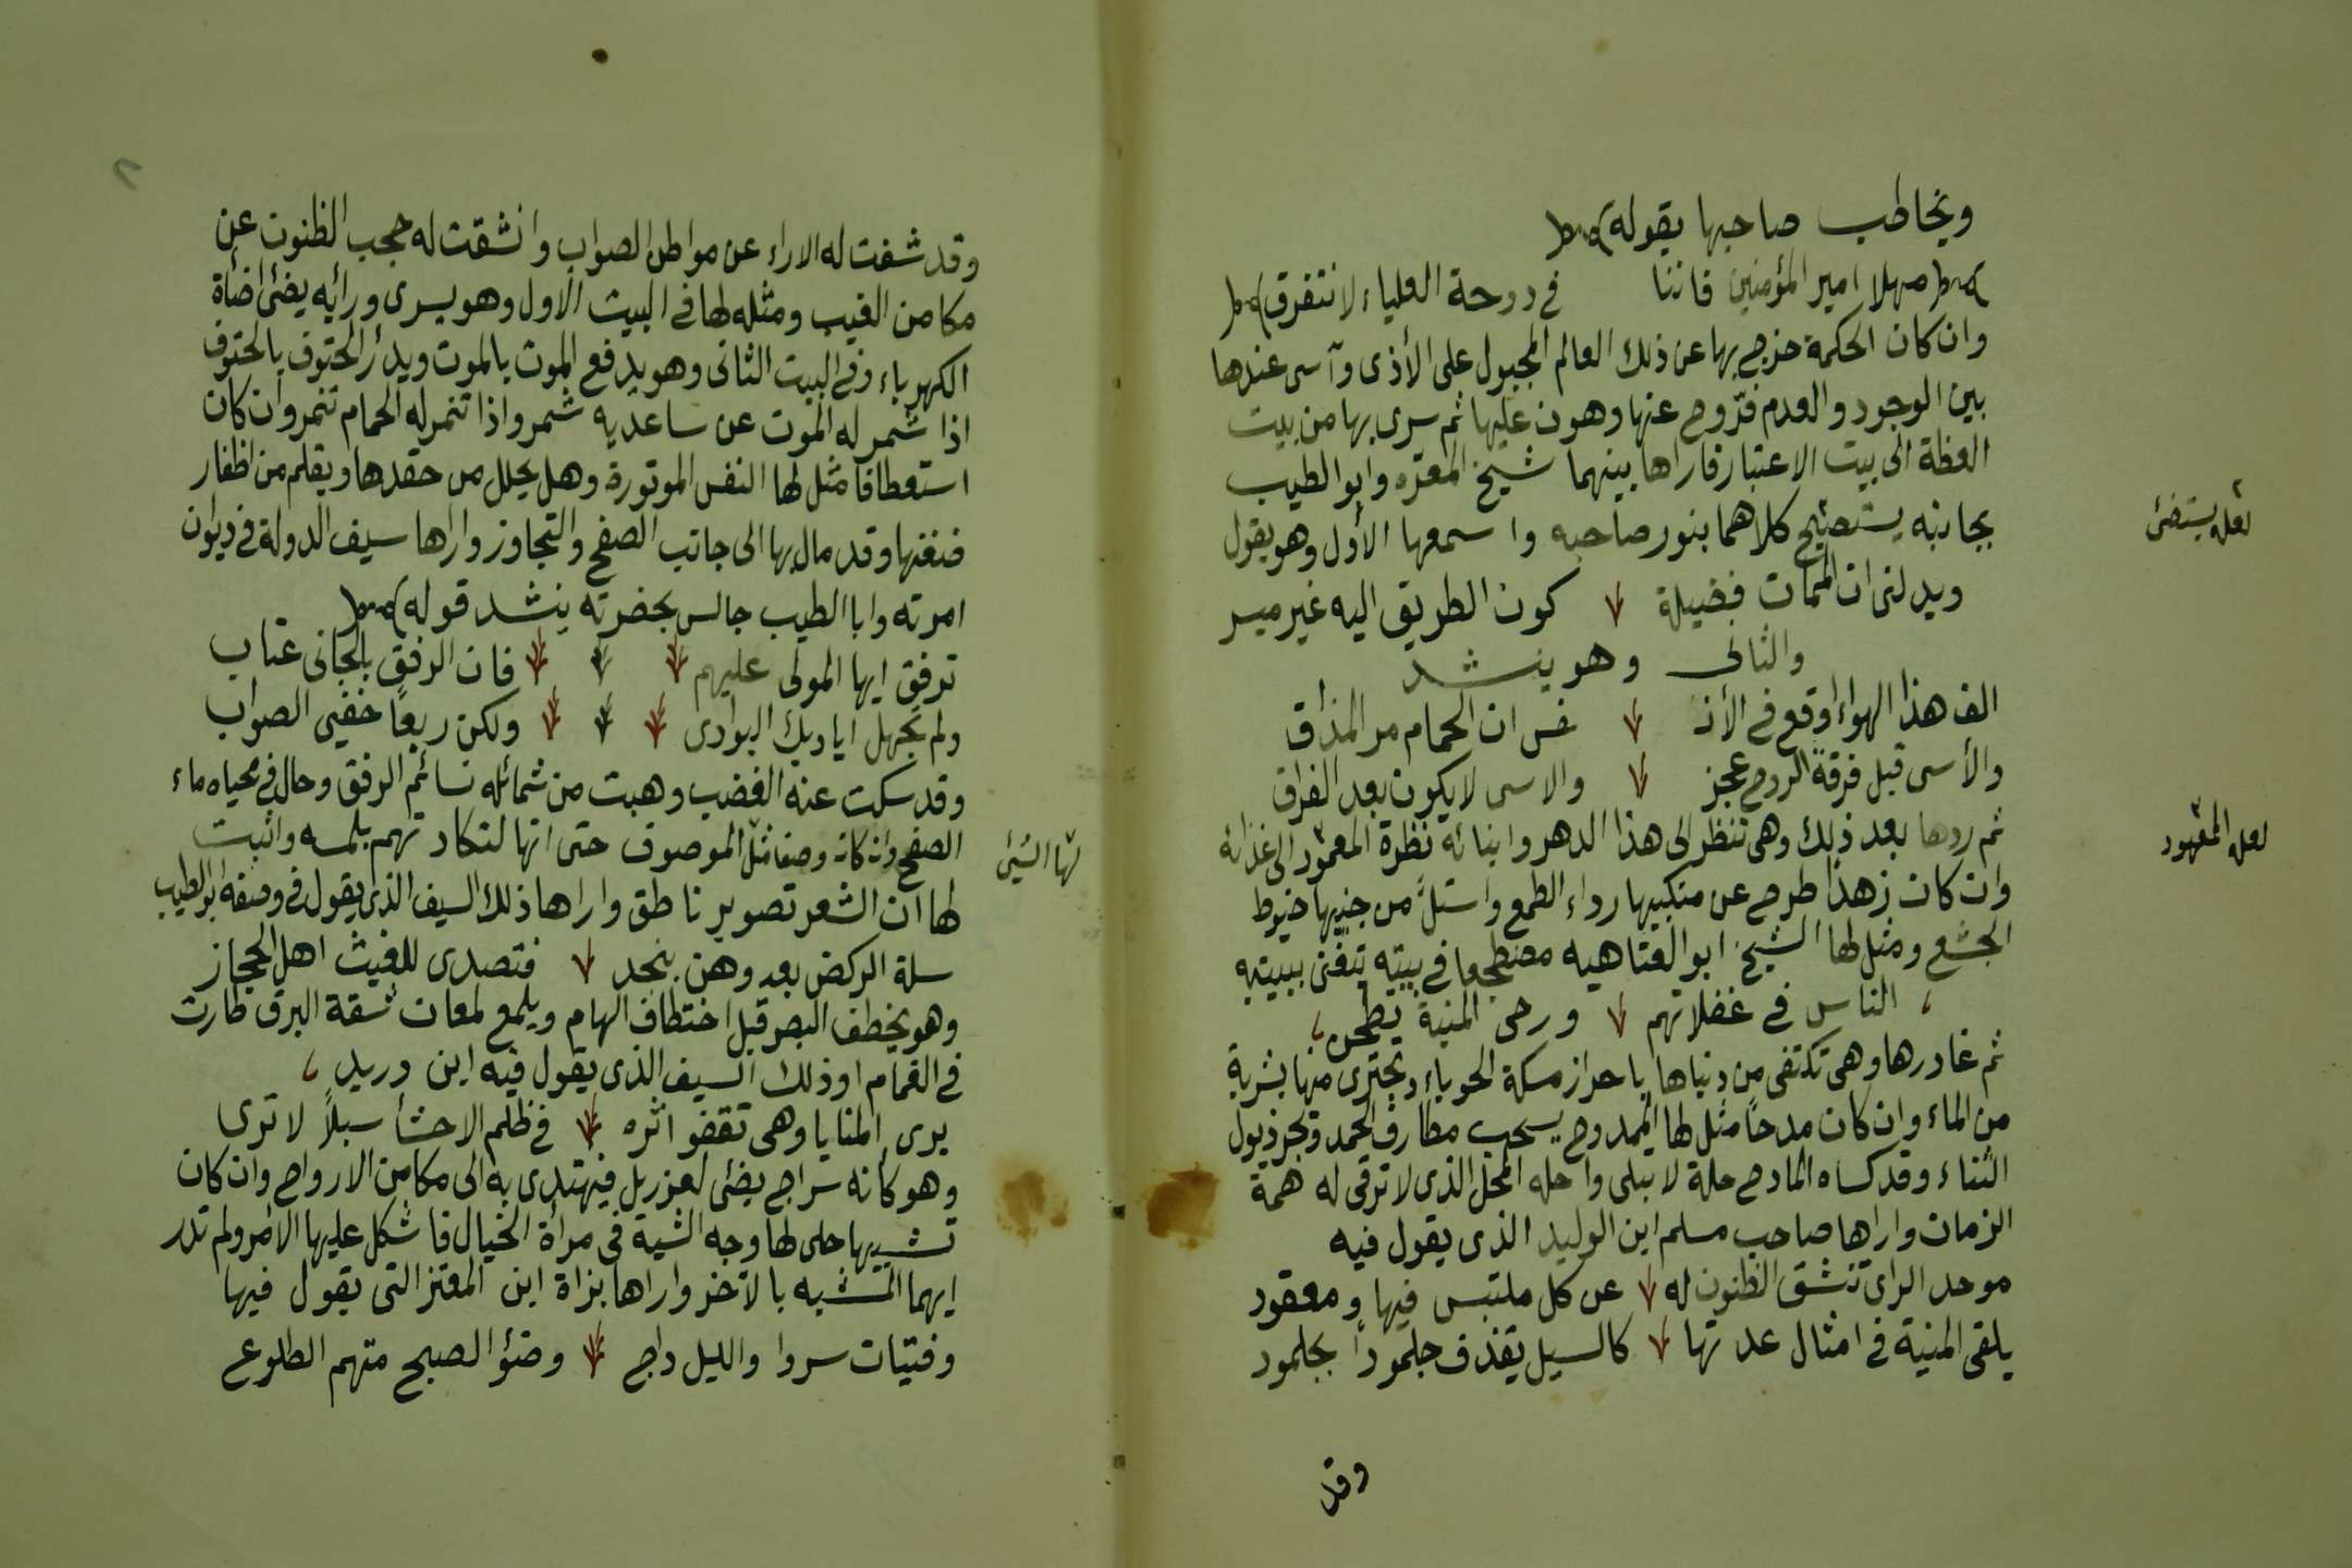 ويخاطب صاحبها بقوله
مهلا امير المؤمنين فاننا في دوحة العلياء لا نتفرق
وان كان الحكمة خرج بها عن ذلك العالم المجبول على الأذى وآسى عندها
بين الوجود والعدم فرّوح عنها وهون عليها ثم سرى بها من بيت
العظة الى بيت الاعتبار فاراها بينهما شيخ المعره وابو الطيب
بجانبه يستصبح كلاهما بنور صاحبه واسمعها الأول وهو يقول
لعله يستضئ
ويدلنى ان الممات فضيلة كون الطريق اليه غير ميسر
والثانى وهو ينشد
الف هذا الهواء اوقع في الأنـ ـفس ان الحمام مر المذاق
والأسى قبل فرقة الروح عجز والاسى لا يكون بعد الفراق
ثم ردها بعد ذلك وهى تنظر الى هذا الدهر وابنائه نظرة المعمود الى عذاله
لعله المفهود
وان كان زهذا طرح عن منكبيها رداء الطمع واستلّ من جنبها خيوط
الجشع ومثل لها الشيخ ابو العتاهيه مضطجعا في بيته يتغنى ببيته
الناس في غفلاتهم ورحى المنية يطحن
ثم غادرها وهى تكتفى من دنياها باحراز مسكة الحوباء وتجتزى منها بشربة
من الماء وان كان مدحاً مثل لها الممدوح يسحب مطارف الحمد ويجر ذيول
الثناء وقد كساه المادح حلة لا تبلى واحله المحل الذى لا ترقى له همة
الزمان واراها صاحب مسلم ابن الوليد الذى يقول فيه
موحد الراى تنشق الظنون له عن كل ملتبس فيها ومعقود
يلقى المنية في امثال عدتها كالسيل يقذف جلموداً بجلمود
وقد
وقد شفت له الاراء عن مواطن الصواب وانشقت له حجب الظنون عن
مكامن الغيب ومثله لها في البيت الاول وهو يسرى ورأيه يضئ اضأة
الكهرباء وفي البيت الثانى وهو يدفع الموت بالموت ويدرأ الحتوف بالحتوف
اذا شمر له الموت عن ساعديه شمر واذا تنمر له الحمام تنمر وان كان
استعطافا مثل لها النفس الموتورة وهل يحلل من حقدها ويقلم من اظفار
ضغنها وقد مال بها الى جانب الصفح والتجاوز واراها سيف الدولة في ديوان
امرته وابا الطيب جالس بحضرته ينشد قوله
ترفق ايها المولى عليهم فان الرفق بالجانى عتاب
ولم تجهل اياديك البوادى ولكن ربما خفى الصواب
وقد سكت عنه الغضب وهبت من شمائله نسائم الرفق وحال في محياه ماء
الصفح وان كان وصفا مثل الموصوف حتى انها لتكاد تهم بلمسه واثبت
لها الشئ
لها ان الشعر تصوير ناطق واراها ذلك السيف الذى يقول في وصفه ابو الطيب
سلة الركض بعد وهن بنجد فتصدى للغيث اهل الحجاز
وهو يخطف البصر قبل اختطاف الهام ويلمع لمعان شقة البرق طارت
في الغمام او ذلك السيف الذى يقول فيه ابن دريد
يرى المنايا وهى تقفو اثره في ظلم الاحشأ سبلاً لا ترى
وهو كانه سراج يضئ لعزريل فيهتدى به الى مكامن الارواح وان كان
تشبيها جلى لها وجه الشبة في مرأة الخيال فاشكل عليها الامر ولم تدر
ايهما المشبه بالآخر واراها بزاة ابن المعتز التى يقول فيها
وفتيان سروا والليل داج وضؤ الصبح متهم الطلوع